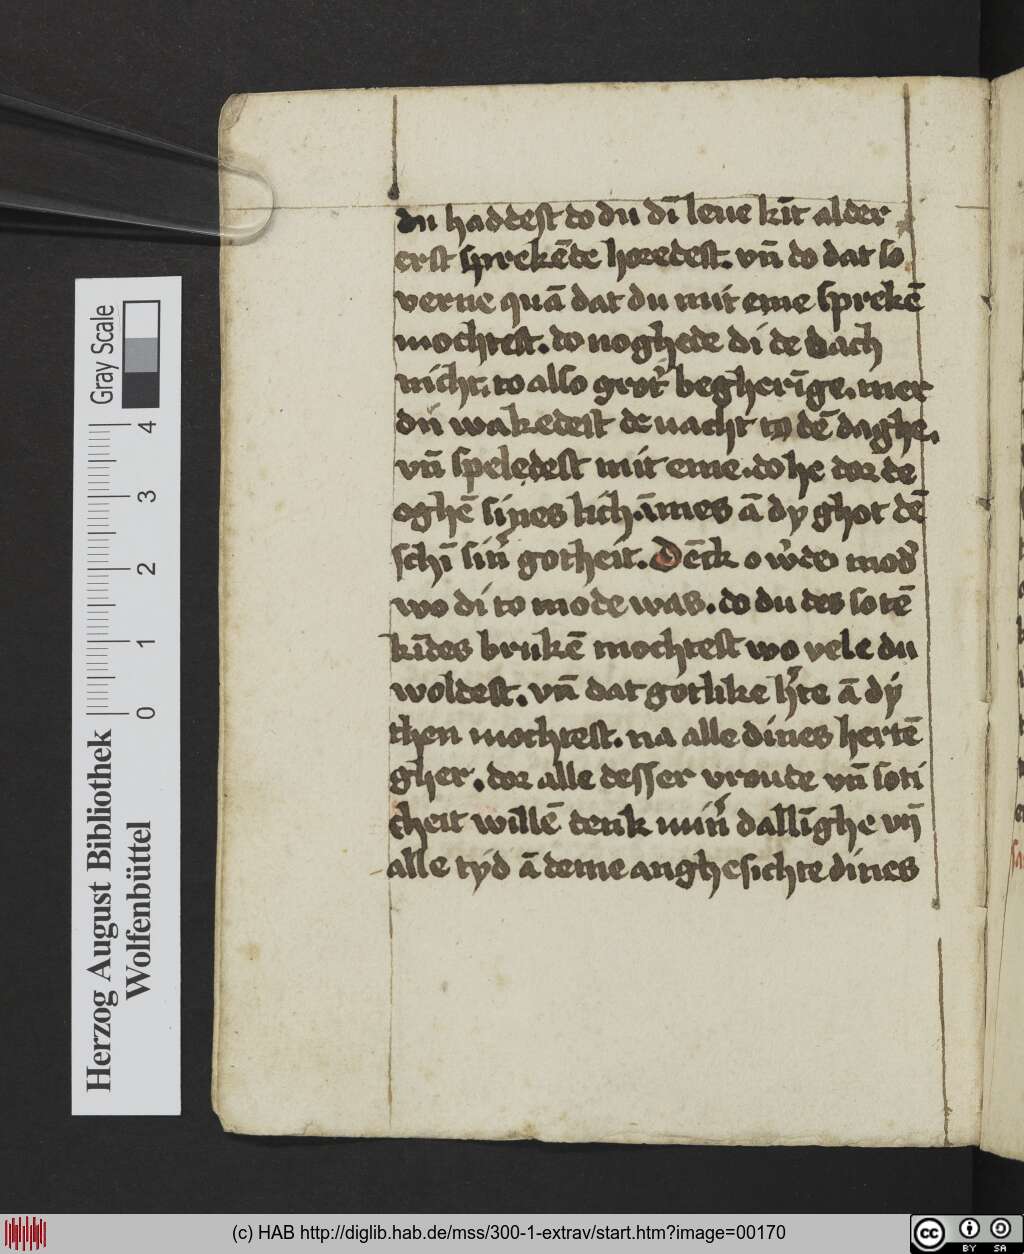 du haddest do du dī leue kīt alder
erst sprekēde horedest. vn̄ do dat so
verne quā dat du mit eme sprekē
mochtest. do noghede di de dach
nicht. to also grot᷑ begherīge. mer
du wakedest de nacht to dē daghe.
vn̄ speledest mit eme. do he dor de
oghē sines lichāmes ā dy ghot dē
schī sin᷑ gotheit. Dēck o w᷑de mod᷑
wo di to mode was. do du des sotē
kīdes brukē mochtest wo vele du
woldest. vn̄ dat gotlike h᷑te ā dy
then mochtest. na alle dines hertē
gher. dor alle desser vroude vn̄ soti
cheit willē denk min᷑ dallīghe vn̄
alle tyd ā deme anghesichte dines
Gray Scale
4
3
2
1
0
Herzog August Bibliothek
Wolfenbüttel
(c) HAB http://diglib.hab.de/mss/300-1-extrav/start.htm?image=00170
cc
BY SA